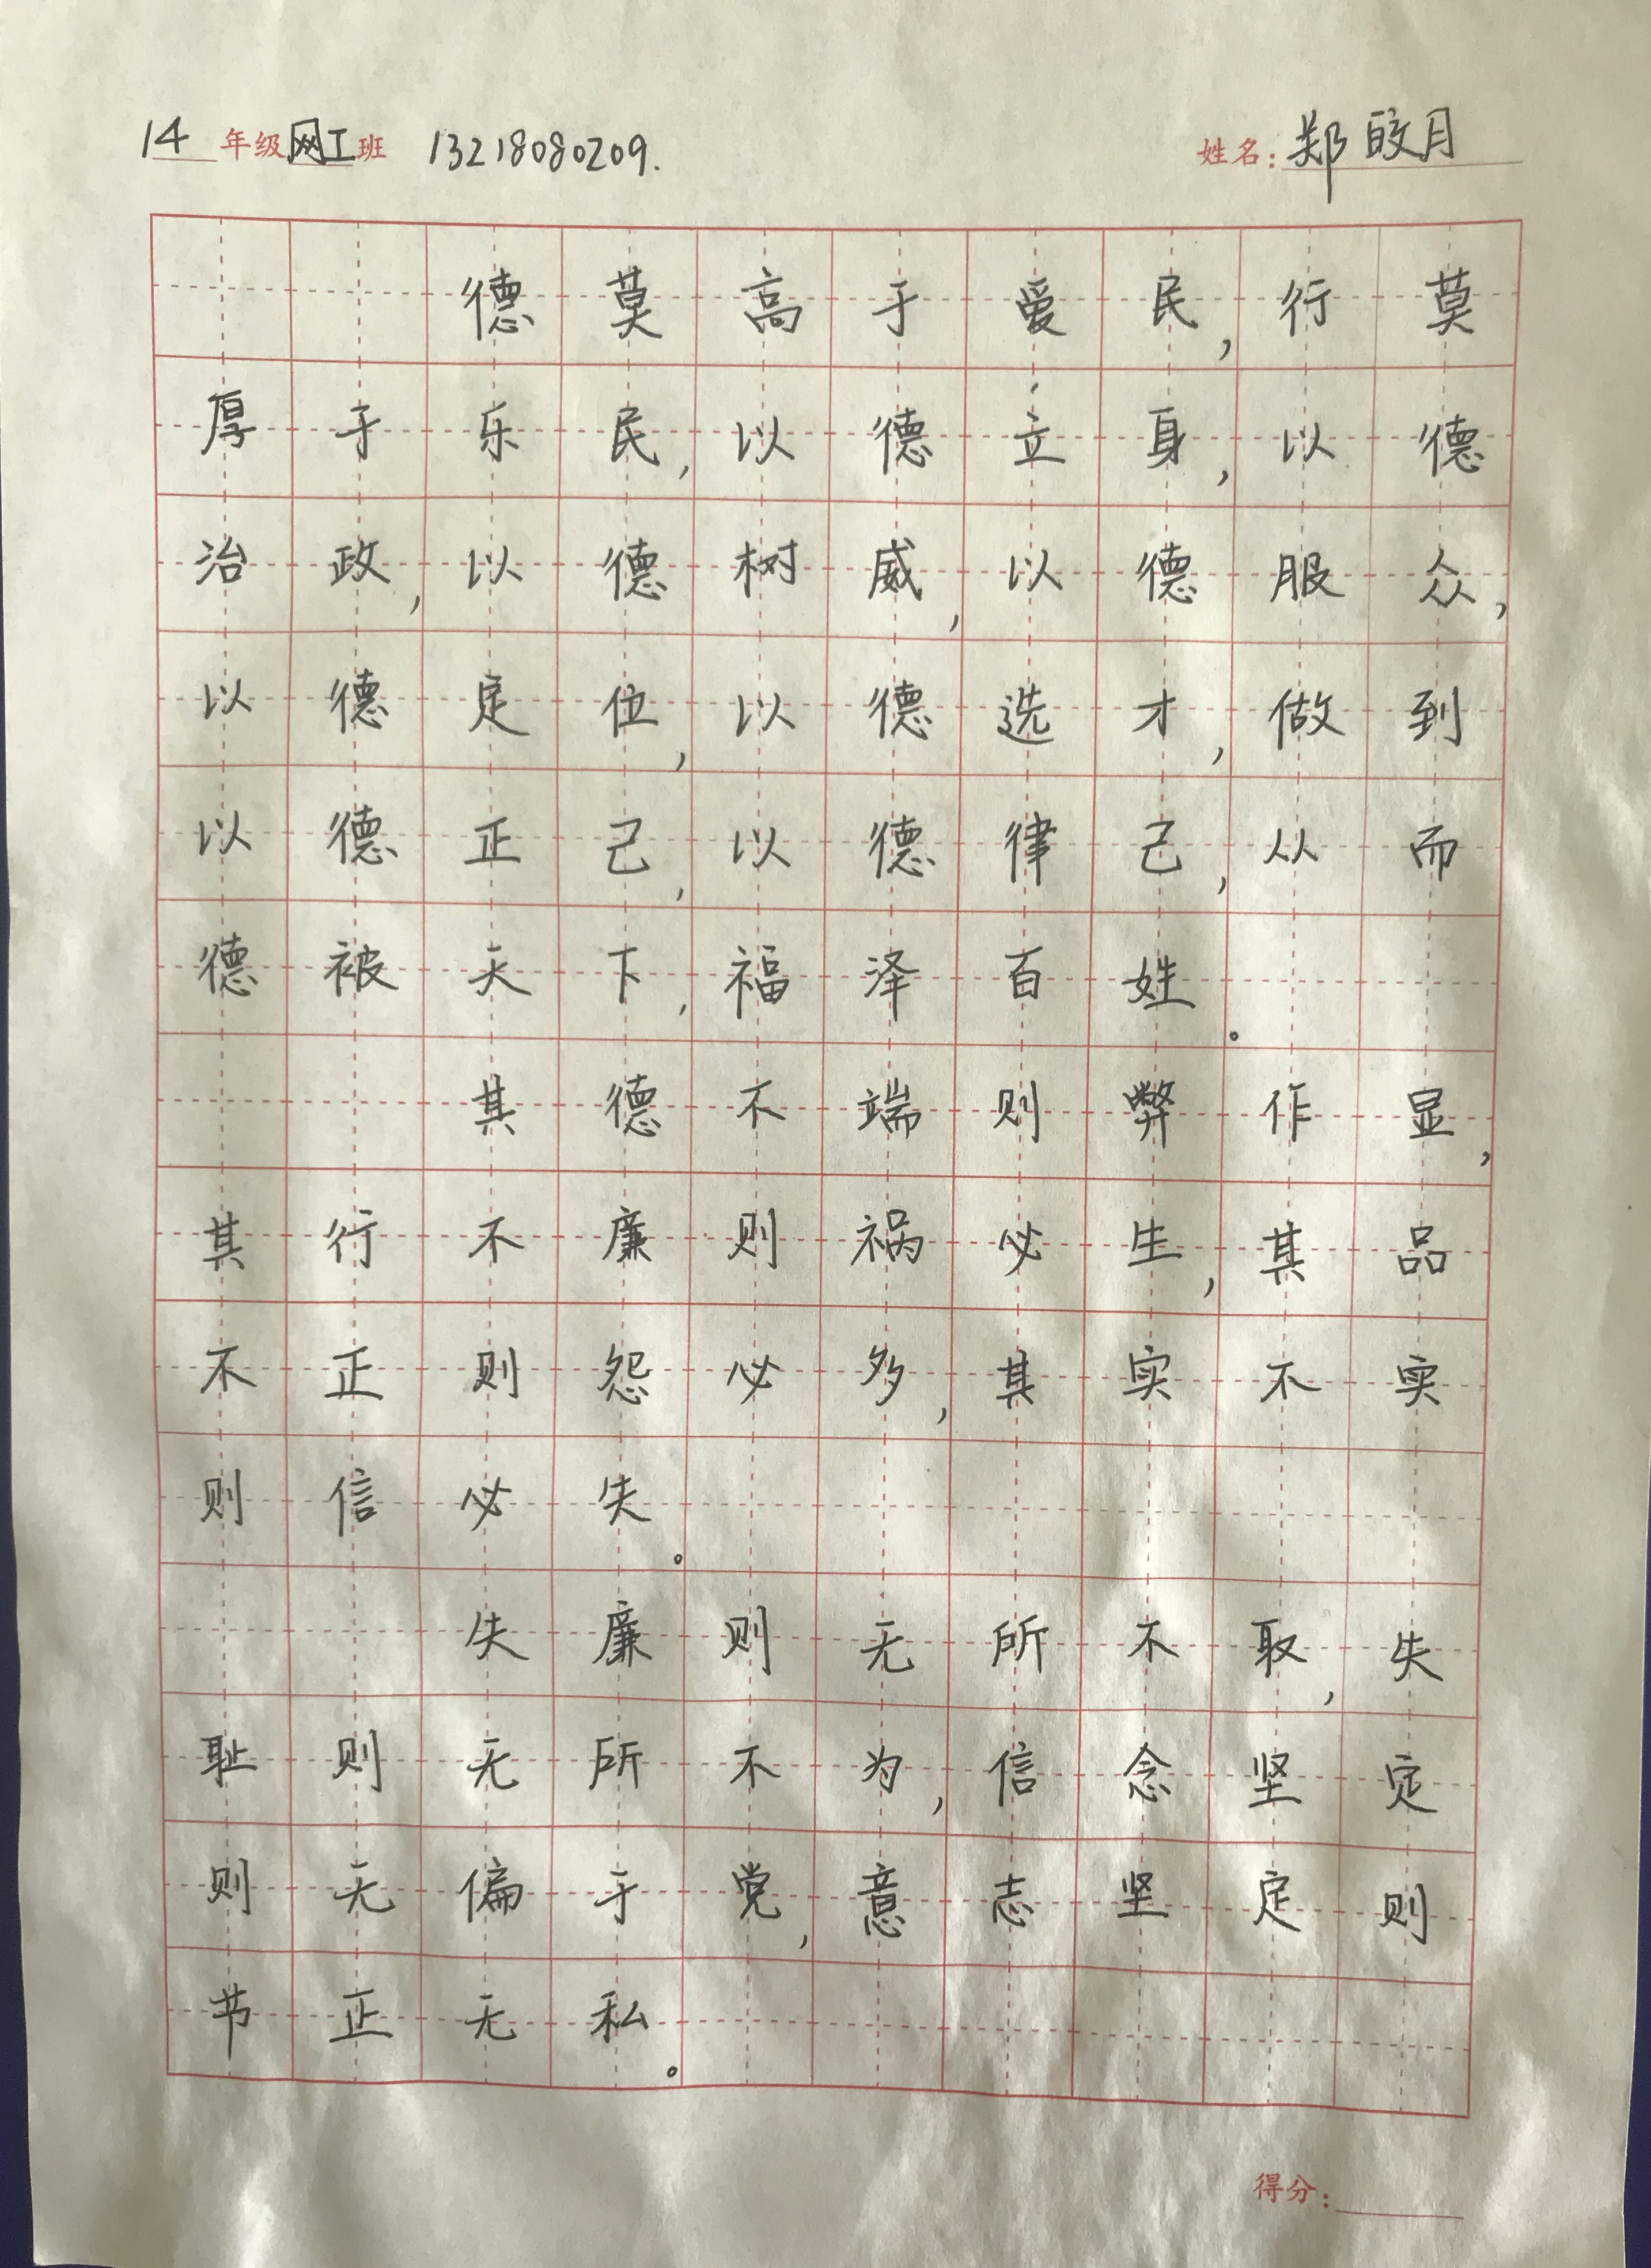 14年级网工班 13218080209. 姓名:郑皎月
德莫高于爱民,行莫
厚于乐民,以德立身,以德
治政,以德树威,以德服众,
以德定位,以德选才,做到
以德正己,以德律己,从而
德被天下,福泽百姓。
其德不端则弊作显,
其行不廉则祸必生,其品
不正则怨必多,其实不实
则信必失。
失廉则无所不取,失
耻则无所不为,信念坚定
则无偏于党,意志坚定则
节正无私。
得分: